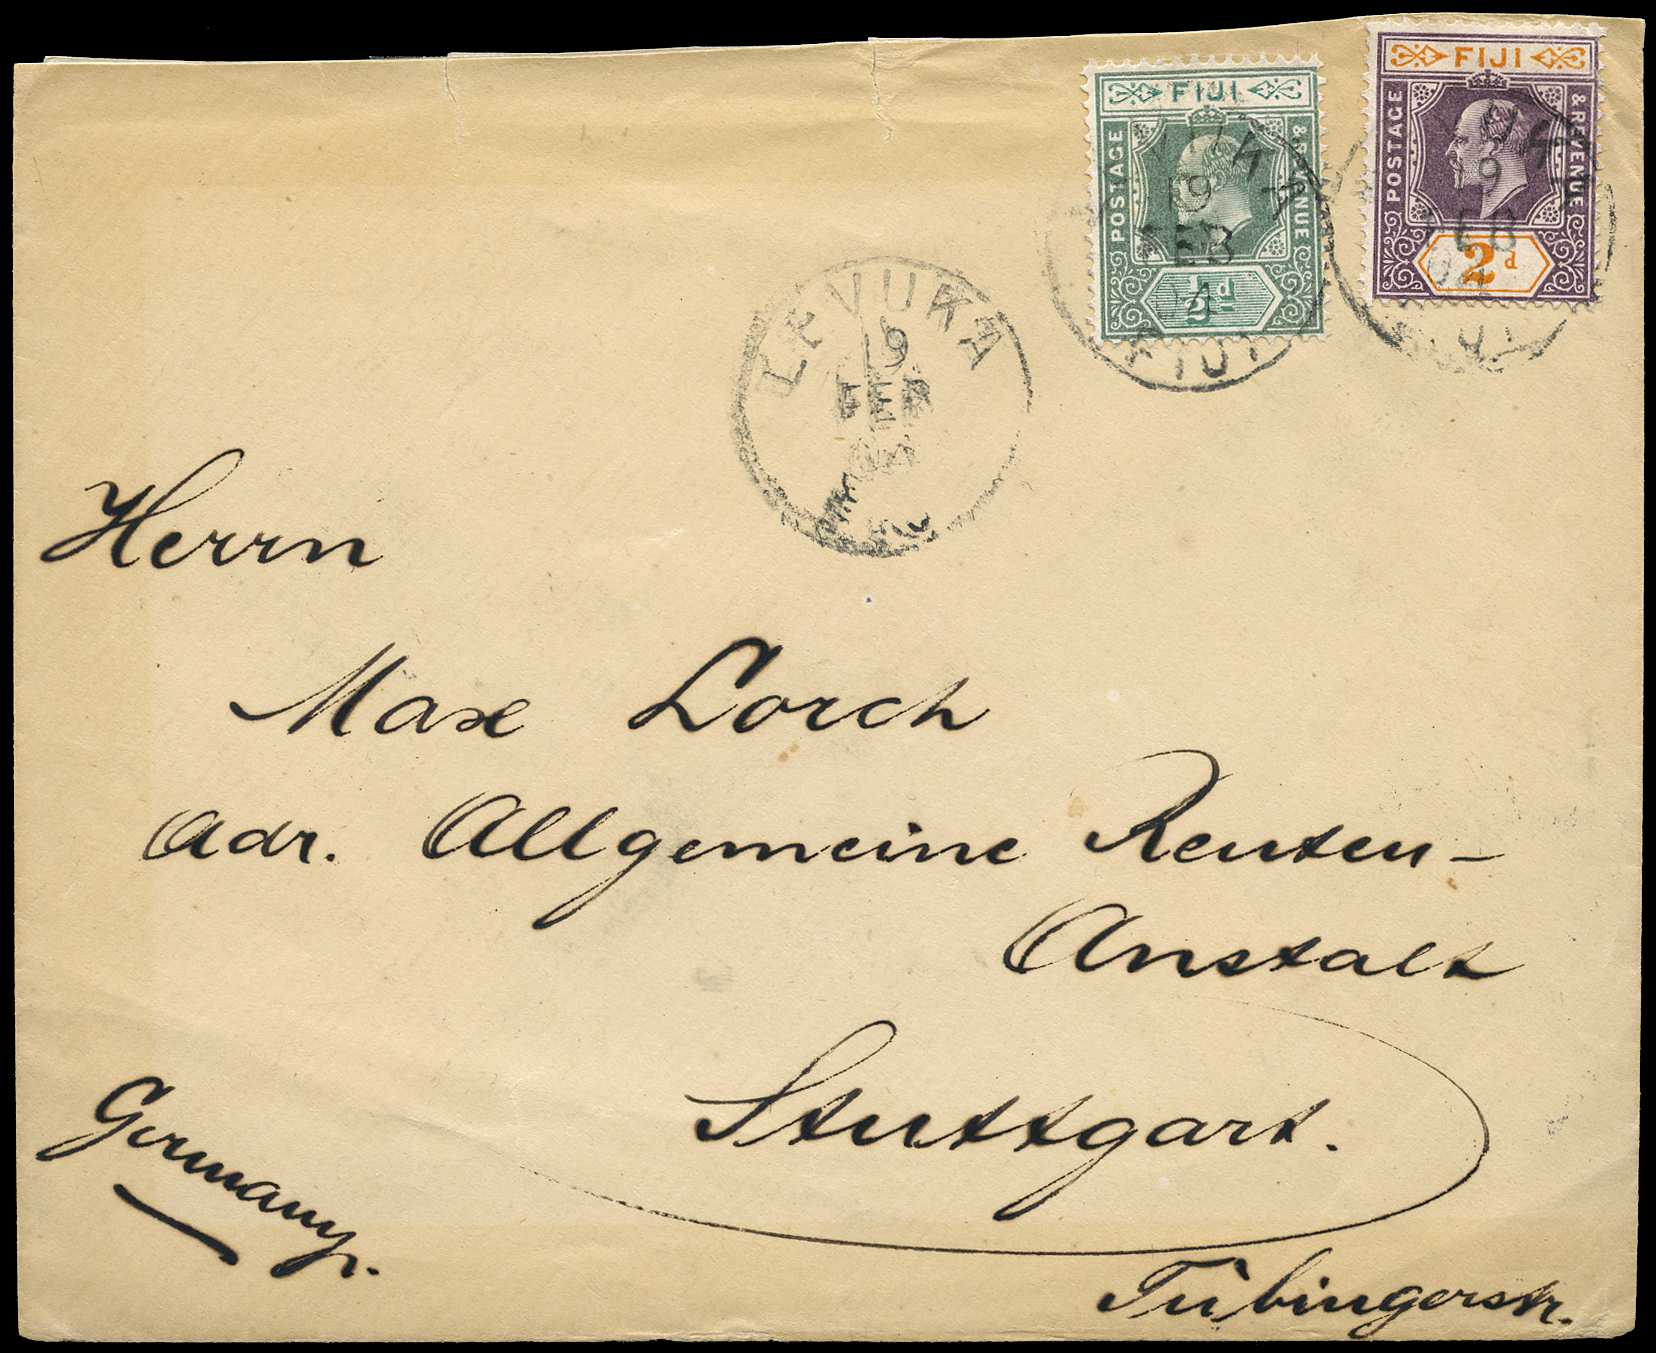 FIJI
POSTAGE & REVENUE
½d
FIJI
POSTAGE & REVENUE
2d
LEVUKA
19
FEB
04
FIJI
19
FEB
04
FIJI
LEVUKA
19
FEB
Herrn
Max Lorch
Adr. Allgemeine Renten-
Anstalt
Stuttgart.
Germany.
Tübingerstr.